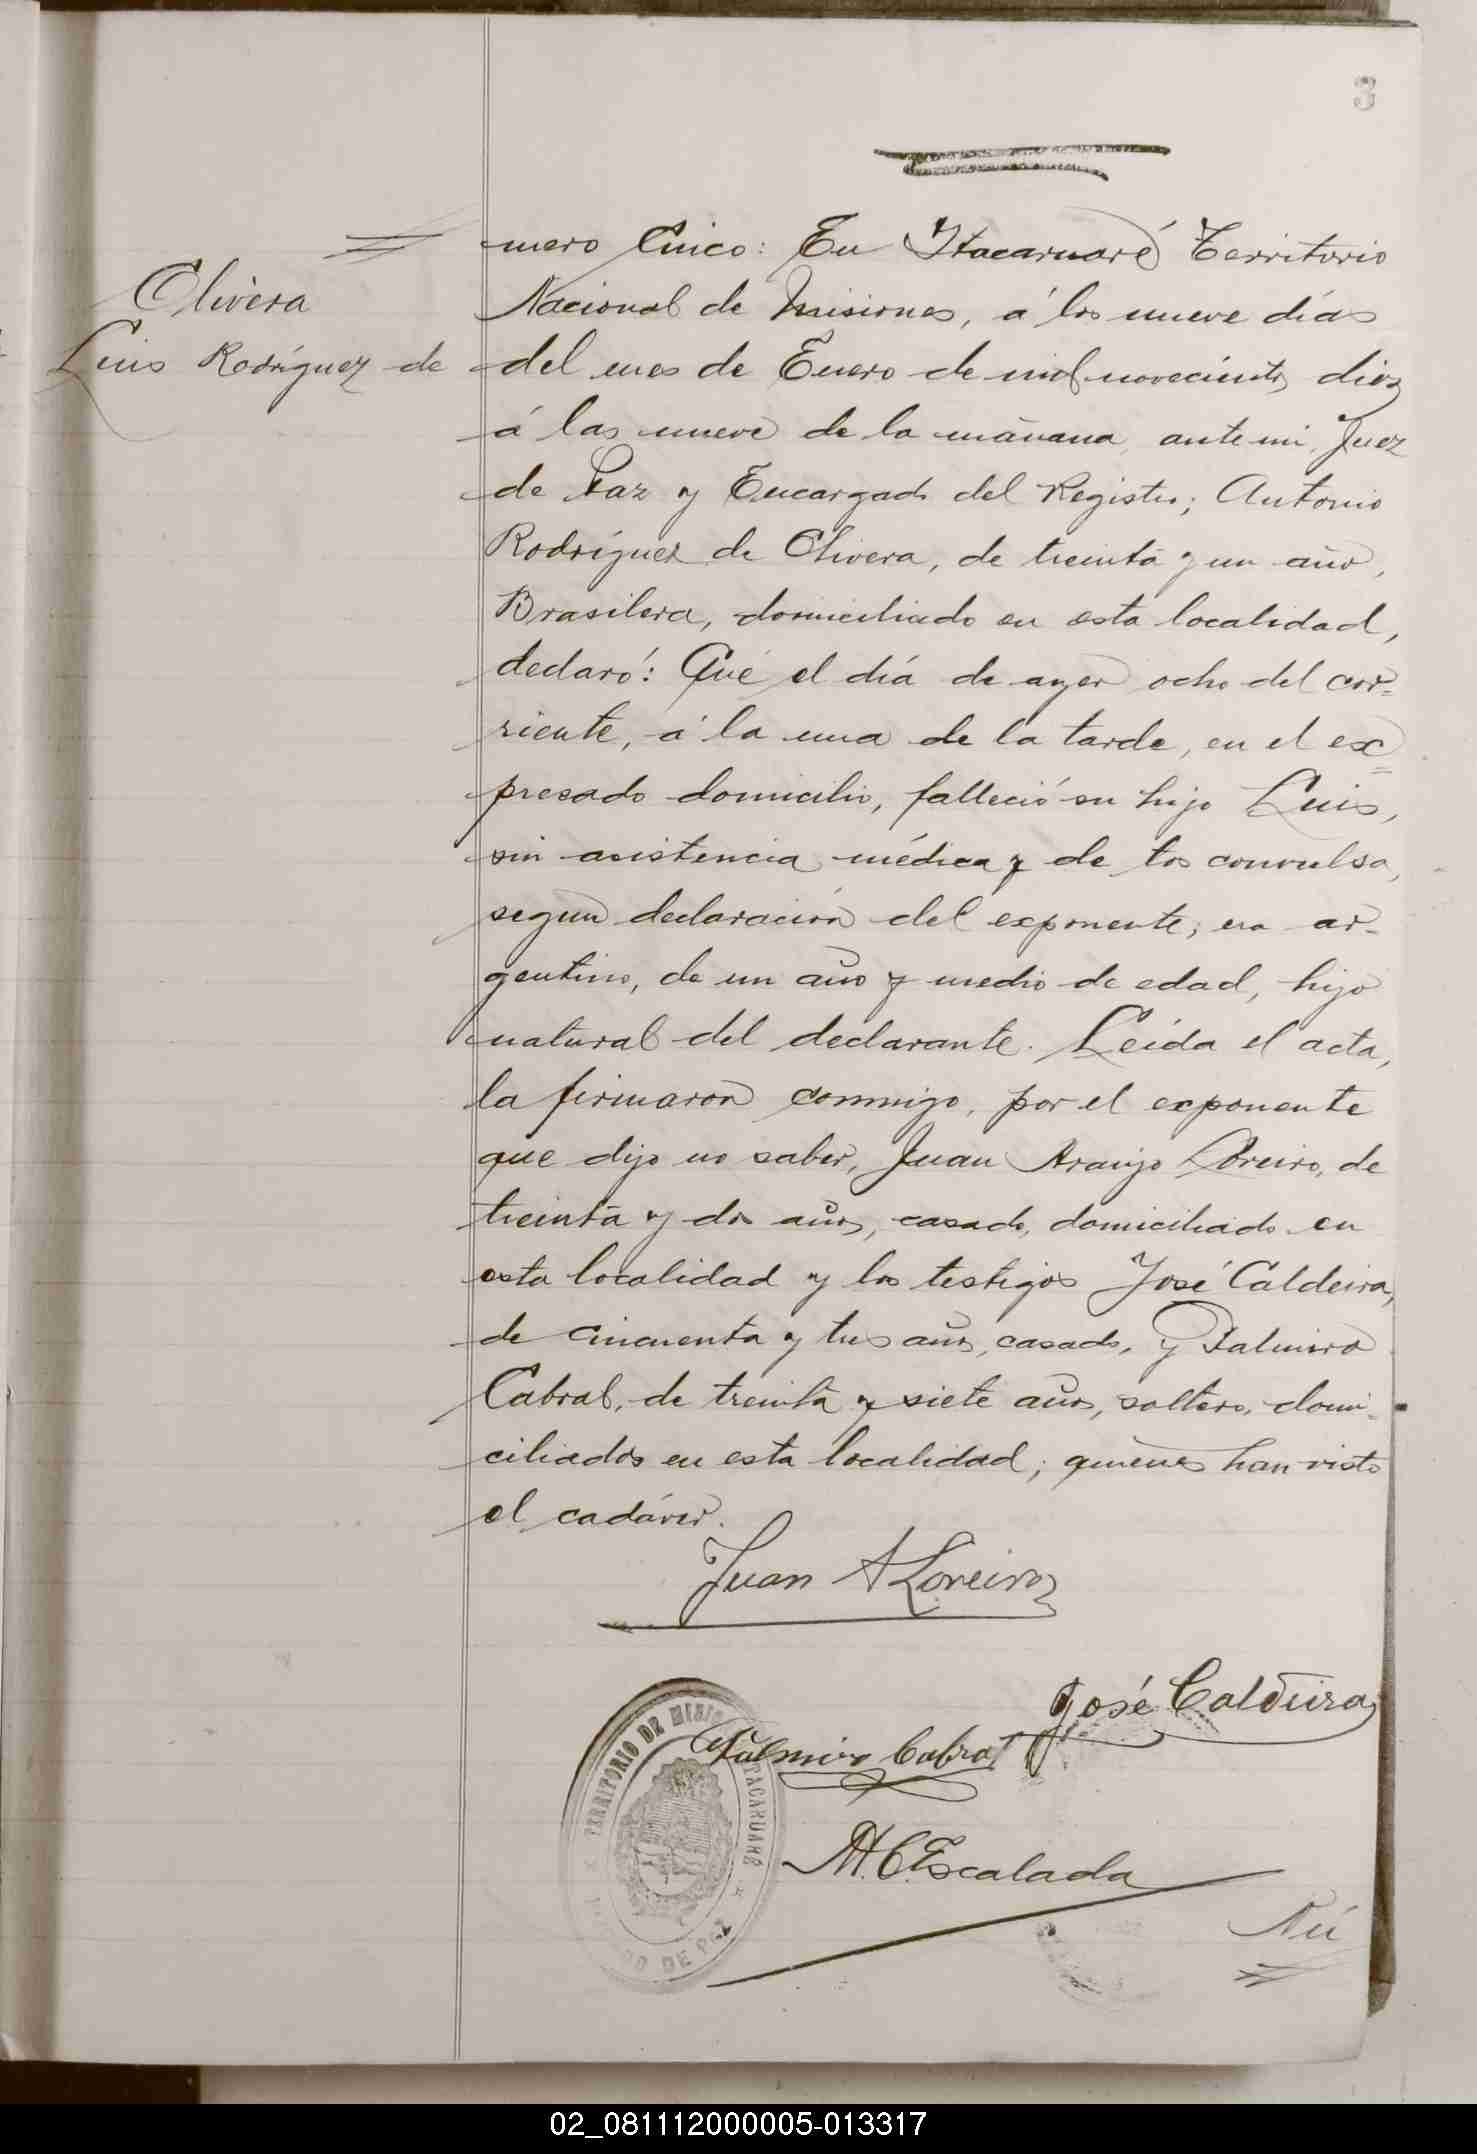 3
Olivera
Luis Rodríguez de
mero Cinco: En Itacaruaré Territorio
Nacional de Misiones, á los nueve días
del mes de Enero de mil novecientos diez
á las nueve de la mañana, ante mi, Juez
de Paz y Encargado del Registro; Antonio
Rodríguez de Olivera, de treinta y un año,
Brasilera, domiciliado en esta localidad,
declaró: Que el día de ayer ocho del cor-
riente, á la una de la tarde, en el ex=
presado domicilio, falleció su hijo Luis,
sin asistencia médica y de tos convulsa,
segun declaración del exponente; era ar-
gentino, de un año y medio de edad, hijo
natural del declarante. Leída el acta,
la firmaron conmigo, por el exponente
que dijo no saber, Juan Araujo Loreiro, de
treinta y dos años, casado, domiciliado en
esta localidad y los testigos José Caldeira,
de cincuenta y tres años, casado, y Palmiro
Cabral, de treinta y siete años, soltero, domi-
ciliados en esta localidad; quienes han visto
el cadáver.
Juan A Loreiro
José Caldeira
Palmiro Cabral
TERRITORIO DE MISIO
ITACARUARÉ
DO DE PAZ
M. C. Escalada
Nú
02_081112000005-013317